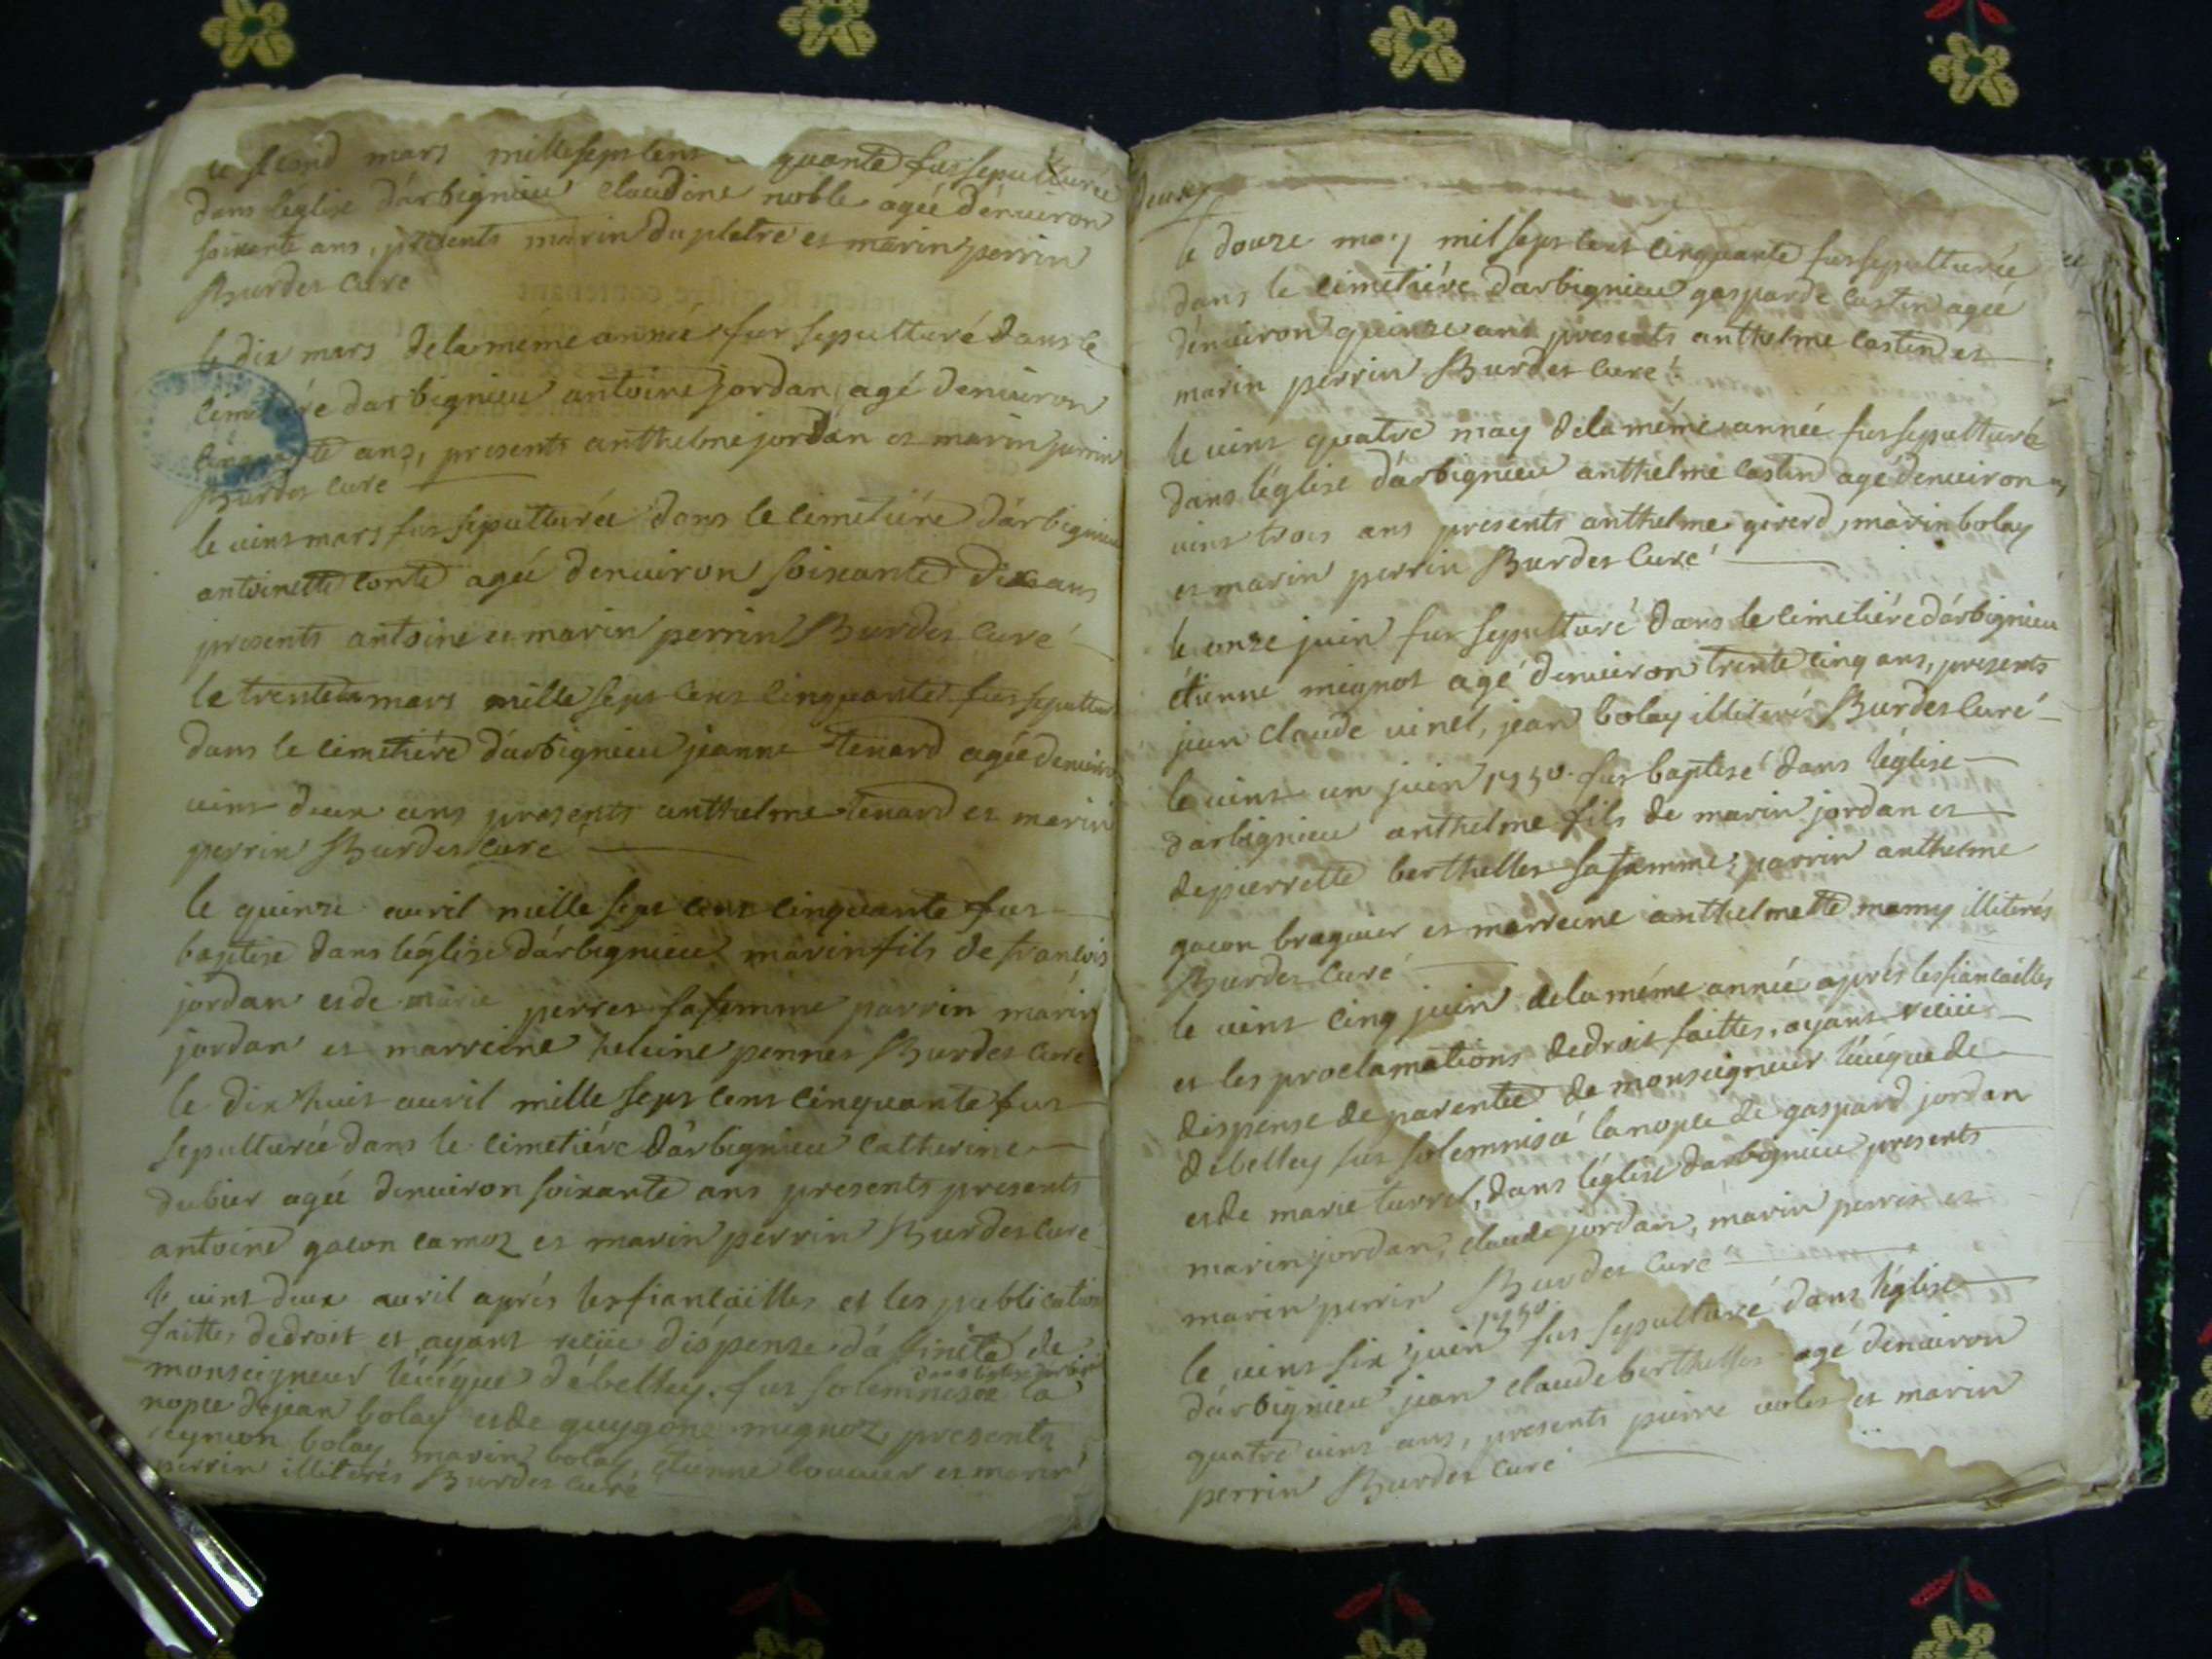 le second mars mille sept cent quante fut sepulturée
dans léglise dárbignieu claudine noble agée dénuiron
soixante ans, présents marin du platre et marin perrin
Burdet Curé
le dix mars dela méme année fut sepulturé dans le
cimetiére darbignieu antoine jordan agé denuiron
ans, presents anthelme jordan et marin perrin
Burdet Curé
le uint mars fut sepulturée dans le cimetiére dárbignieu
antoinette Conte agée denuiron soixante dix ans
presents antoine et marin perrin Burdet Curé
le trente mars mille sept cent cinquante fut sepultu
dans le cimetiére dárbignieu jeanne tenard agée denuiro
uint deux ans presents anthelme tenard et marin
perrin Burdet Curé
le quinze auril mille sept cent cinquante fut
baptisé dans léglise dárbignieu marin fils de francois
jordan et de marie perret sa femme parrin marin
jordan et marreine heleine pennet Burdet Curé
le dix huit auril mille sept cent cinquante fut
sepulturée dans le cimetiére dárbignieu Catherine
dubier agée denuiron soixante ans presents presents
antoine gacon camoz et marin perrin Burdet Curé
le uint deux auril aprés les fiancäilles et les publication
faittes dedroit et ayant reçüe dispense dáffinité de
monseigneur léuéque débelley. fut solemnisée la
dans léglise darbig
nopce de jean bolay et de guygone mignoz presents
bolay marin bolay etienne bouuier et marin
perrin illiterés Burdet Curé
deux
le douze may mil sept cent cinquante fut sepulturée
dans le cimetiére dárbignieu gasparde castin agée
dénuiron quinze ans presents anthelme castin et
marin perrin Burdet Curé
le uint quatre may dela méme année fut sepulturé
dans léglise dárbignieu anthelme castin agé denuiron
uint trois ans presents anthelme girerd, marin bolay
et marin perrin Burdet Curé
le onze juin fut sepulturé dans le cimetiére dárbignieu
étienne mignot agé denuiron trente cinq ans, presents
jean claude uinet, jean bolay illiterés Burdet Curé
le uint un juin 1750. fut baptisé dans léglise
darbignieu anthelme fils de marin jordan et
de pierrette berthellet sa femme, parrin anthelme
gacon braguier et marreine anthelmette mamy illiterés
Burdet Curé
le uint cinq juin dela méme année aprés les fiancailles
et les proclamations dedroit faittes, ayant reçüe
dispense de parentée de monseigneur léuéque de
débelley fut solemnisée la nopce de gaspard jordan
et de marie turrel, dans léglise darbignieu presents
marin jordan, claude jordan, marin perrin et
marin perrin Burdet Curé
le uint six juin 1750. fut sepulturé dans léglise
dárbignieu jean claude berthellet agé denuiron
quatre uint ans, presents pierre uolet et marin
perrin Burdet Curé